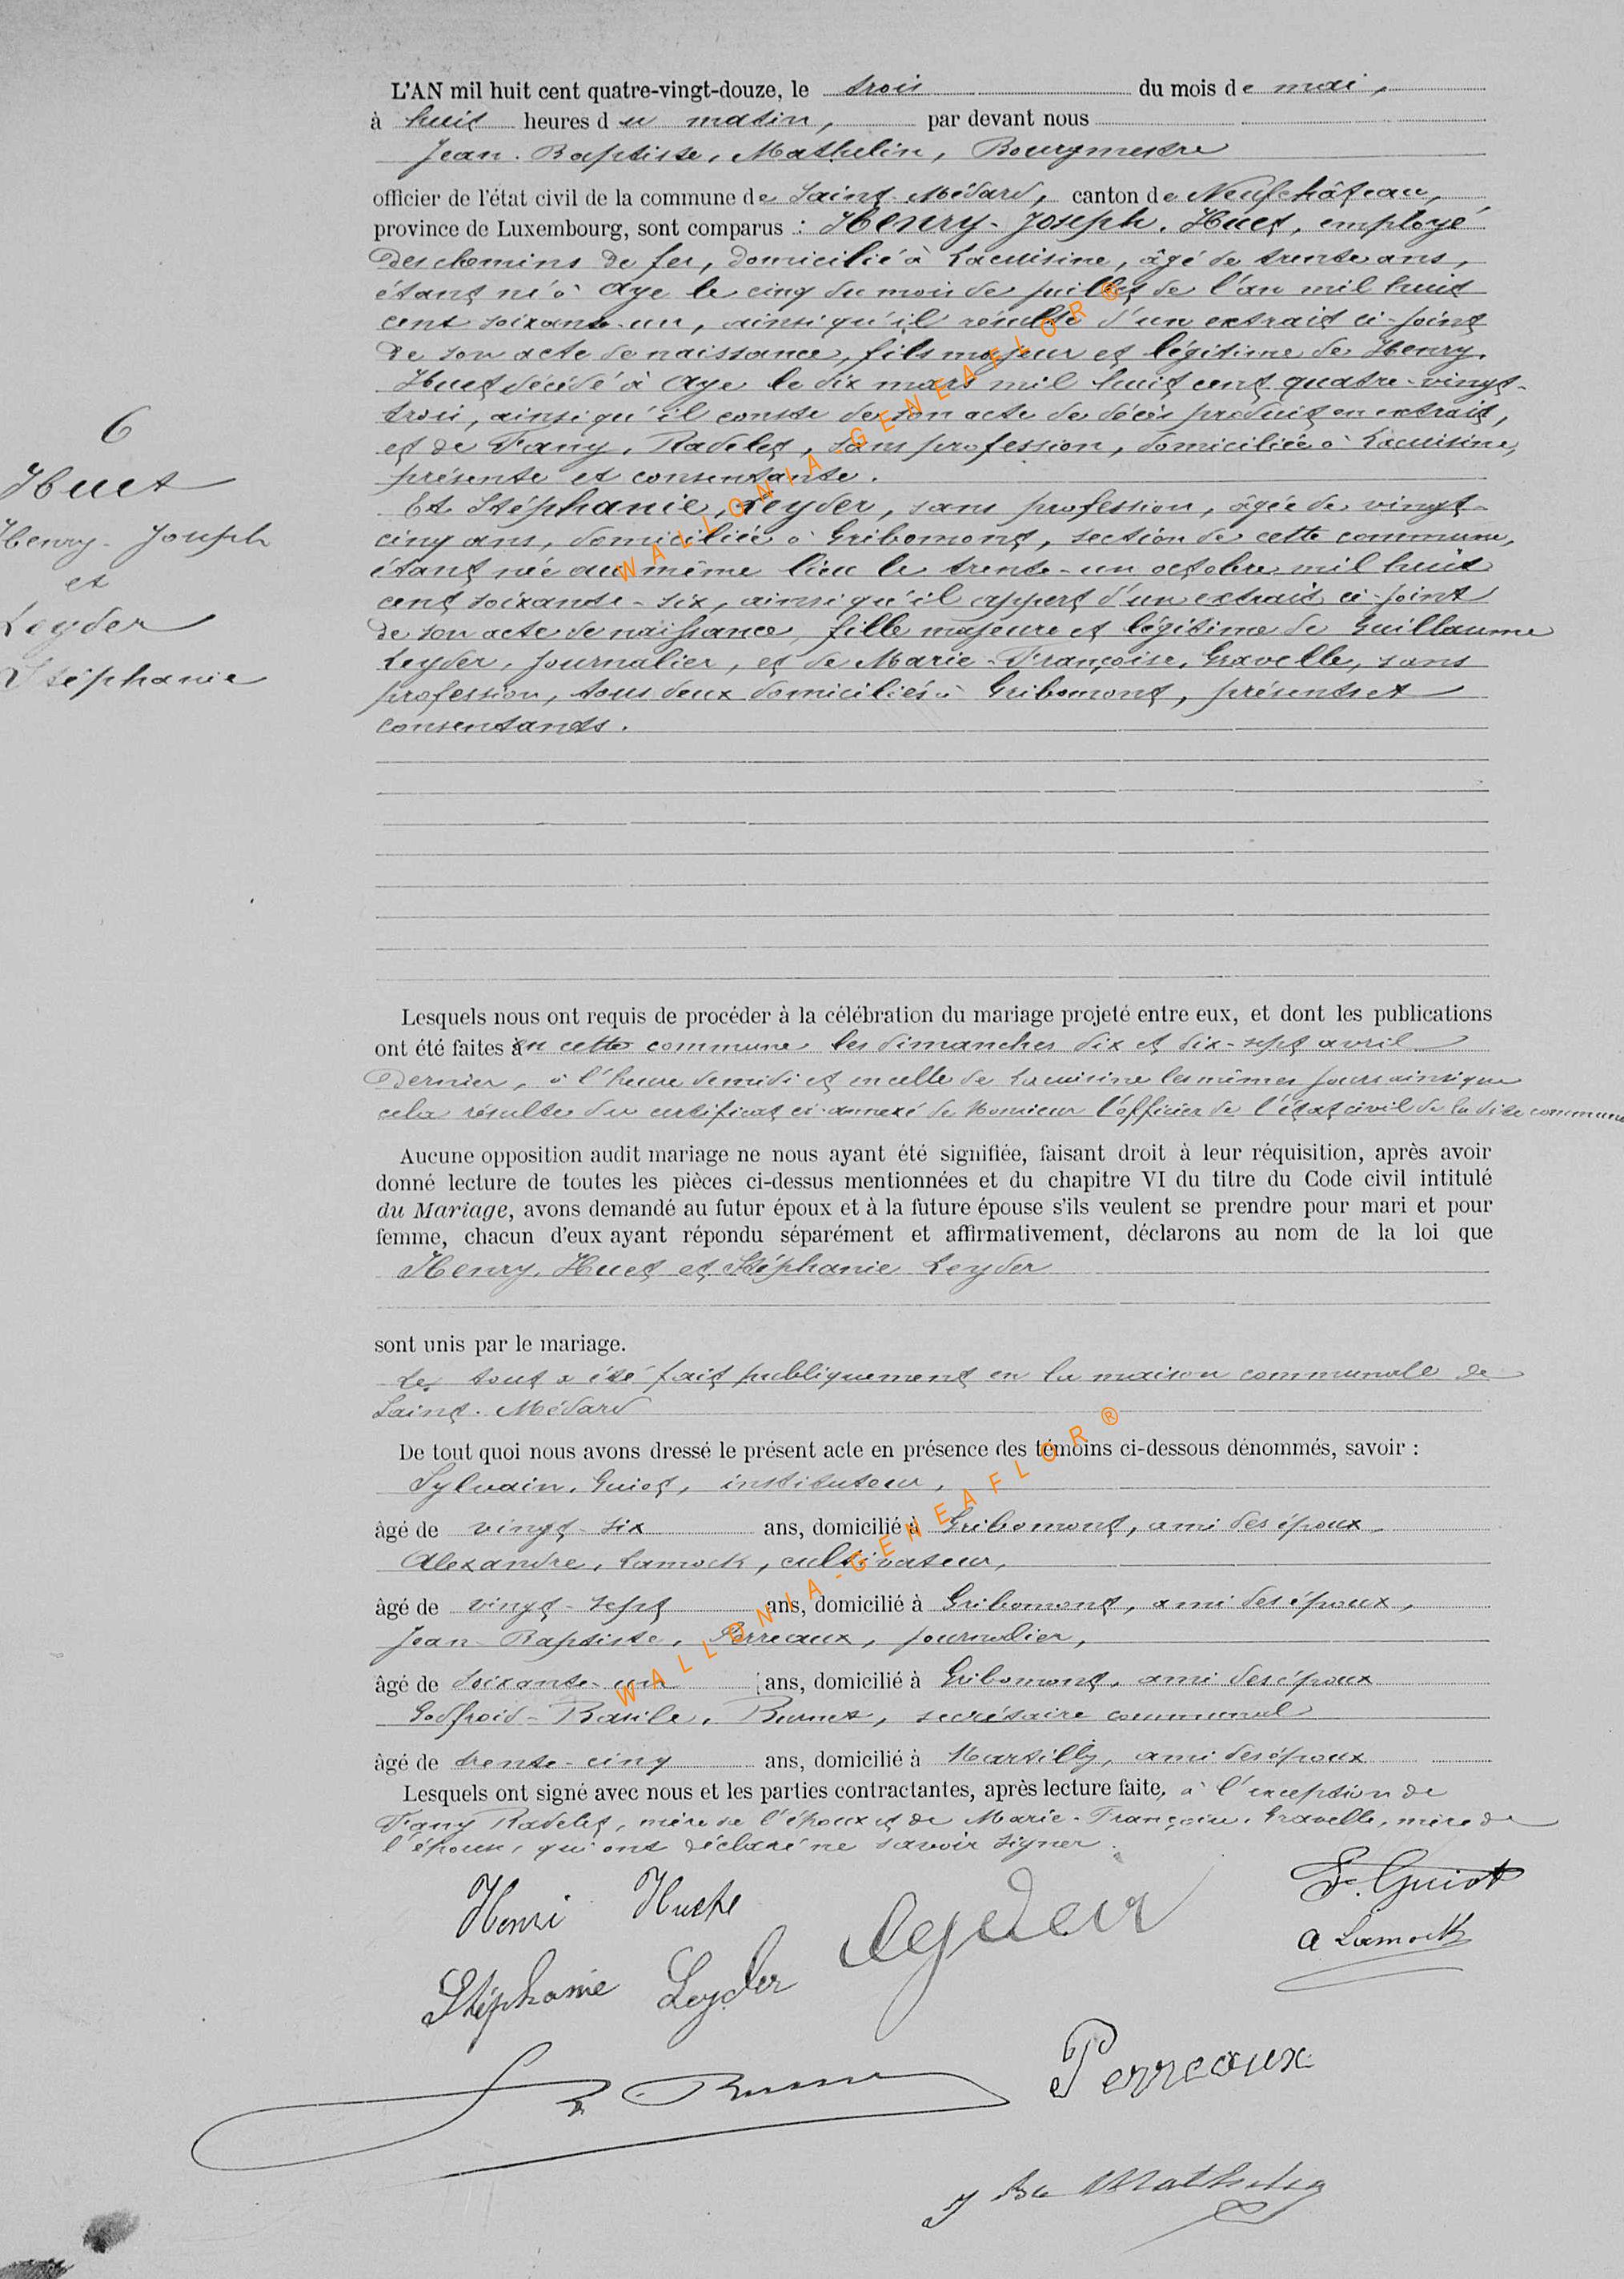 L'AN mil huit cent quatre-vingt-douze, le trois du mois de mai,
à huit heures du matin, par devant nous
Jean-Baptiste, Mathelin, Bourgmestre
officier de l'état civil de la commune de Saint-Médard, canton de Neufchâteau,
province de Luxembourg, sont comparus : Henry-Joseph, Huet, employé
des chemins de fer, domicilié à Lacuisine, âgé de trente ans,
étant né à Aye le cinq du mois de juillet de l'an mil huit
cent soixante-un, ainsi qu'il résulte d'un extrait ci-joint
de son acte de naissance, fils majeur et légitime de Henry,
Huet décédé à Aye le dix mars mil huit cent quatre-vingt-
trois, ainsi qu'il conste de son acte de décès produit en extrait,
et de Fany, Radelet, sans profession, domiciliée à Lacuisine,
présente et consentante.
6
Huet
Henry-Joseph
et
Leyder
Stéphanie
Et Stéphanie, Leyder, sans profession, âgée de vingt-
cinq ans, domiciliée à Gribomont, section de cette commune,
étant née au même lieu le trente-un octobre mil huit
cent soixante-six, ainsi qu'il appert d'un extrait ci-joint
de son acte de naissance, fille majeure et légitime de Guillaume
Leyder, journalier, et de Marie-Françoise, Gravelle, sans
profession, tous deux domiciliés à Gribomont, présents et
consentants.
Lesquels nous ont requis de procéder à la célébration du mariage projeté entre eux, et dont les publications
ont été faites en cette commune les dimanches dix et dix-sept avril
dernier, à l'heure de midi et en celle de Lacuisine les mêmes jours ainsi que
cela résulte du certificat ci-annexé de Monsieur l'officier de l'état civil de la dite commune
Aucune opposition audit mariage ne nous ayant été signifiée, faisant droit à leur réquisition, après avoir
donné lecture de toutes les pièces ci-dessus mentionnées et du chapitre VI du titre du Code civil intitulé
du Mariage, avons demandé au futur époux et à la future épouse s'ils veulent se prendre pour mari et pour
femme, chacun d'eux ayant répondu séparément et affirmativement, déclarons au nom de la loi que
Henry, Huet et Stéphanie Leyder
sont unis par le mariage.
Le tout a été fait publiquement en la maison communale de
Saint-Médard
De tout quoi nous avons dressé le présent acte en présence des témoins ci-dessous dénommés, savoir :
Sylvain, Guiot, instituteur,
âgé de vingt-six ans, domicilié à Gribomont, ami des époux,
Alexandre, Lamock, cultivateur,
âgé de vingt-sept ans, domicilié à Gribomont, ami des époux,
Jean-Baptiste, Perreaux, journalier,
âgé de soixante-un ans, domicilié à Gribomont, ami des époux
Godfroid-Basile, secrétaire communal
âgé de trente-cinq ans, domicilié à Martilly, ami des époux
Lesquels ont signé avec nous et les parties contractantes, après lecture faite, à l'exception de
Fany Radelet, mère de l'époux et de Marie-Françoise, Gravelle, mère de
l'épouse, qui ont déclaré ne savoir signer.
Henri Huet
Leyder
S. Guiot
a Lamock
Stéphanie Leyder
Perreaux
J Bte Mathelin
WALLONIA-GENEAFLOR®
WALLONIA-GENEAFLOR®